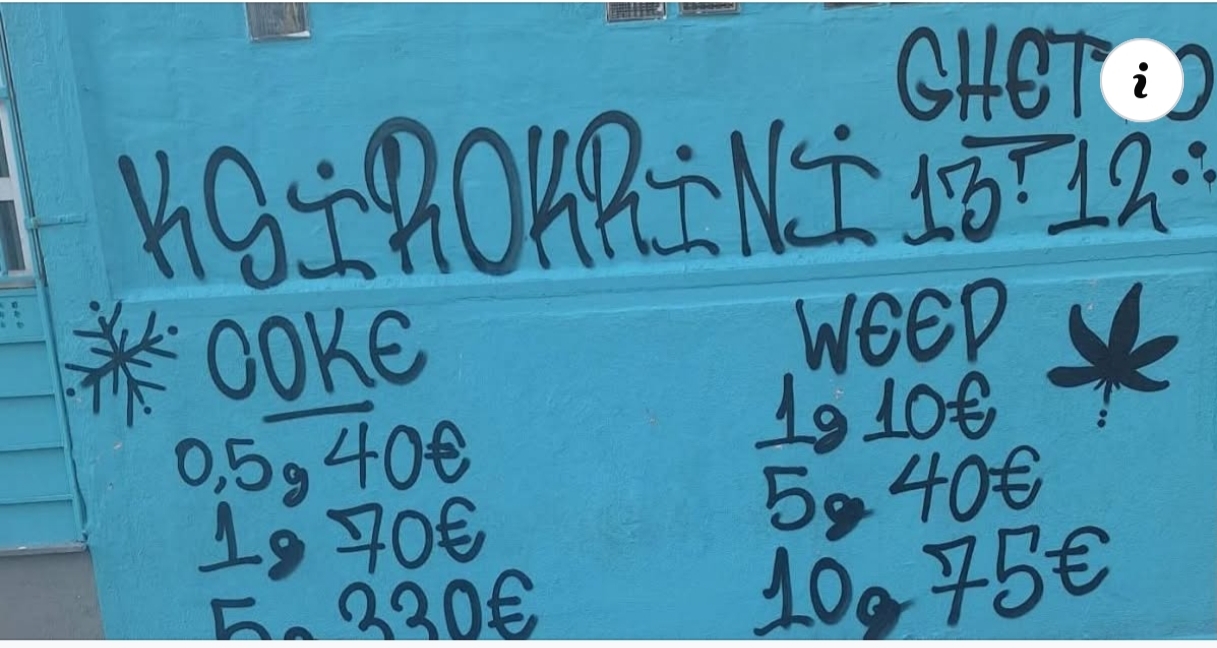 GHETTO
KSiROKRiNi 13.12
COKE
0,5g 40€
1g 70€
5g 330€
WEED
1g 10€
5g 40€
10g 75€